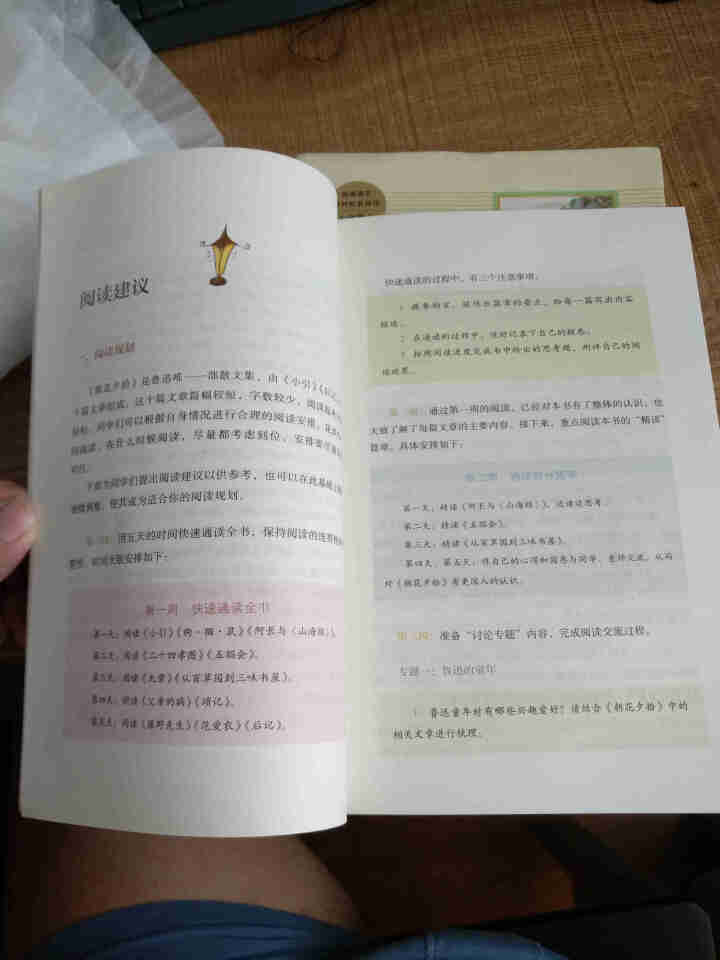 阅读建议
一、阅读规划
《朝花夕拾》是鲁迅唯一一部散文集，由《小引》《后记》
十篇文章组成。这十篇文章篇幅较短，字数较少，阅读起来
轻松。同学们可以根据自身情况进行合理的阅读安排，花
间阅读，在什么时候阅读，尽量都考虑到位，安排妥当
可行。
下面为同学们提出阅读建议以供参考，也可以在此基础上
地做调整，使其成为适合你的阅读规划。
用五天的时间快速通读全书，保持阅读的连贯
整性。时间大致安排如下：
第一周 快速通读全书
第一天：阅读《小引》《狗·猫·鼠》《阿长与〈山海经〉》。
第二天：阅读《二十四孝图》《五猖会》。
第三天：阅读《无常》《从百草园到三味书屋》。
第四天：阅读《父亲的病》《琐记》。
第五天：阅读《藤野先生》《范爱农》《后记》。
快速通读的过程中，有三个注意事项。
1 提要钩玄，提炼出篇章的要点，给每一篇写出内容
2 在通读的过程中，随时记录下自己的疑惑。
3 按照阅读进度完成书中给出的思考题，用评自己的阅
读效果。
通过第一周的阅读，已经对本书有了整体的认识，也
大致了解了每篇文章的主要内容。接下来，重点阅读本书的“精读”
篇章，具体安排如下：
第二周 精读部分篇章
第一天：精读《阿长与〈山海经〉》，边读边思考。
第二天：精读《五猖会》。
第三天：精读《从百草园到三味书屋》。
第四天、第五天：将自己的心得和困惑与同学、老师交流，从而
对《朝花夕拾》有更深入的认识。
第三周：准备“讨论专题”内容，完成阅读交流过程。
专题一：鲁迅的童年
1 鲁迅童年时有哪些兴趣爱好？请结合《朝花夕拾》中的
相关文章进行梳理。